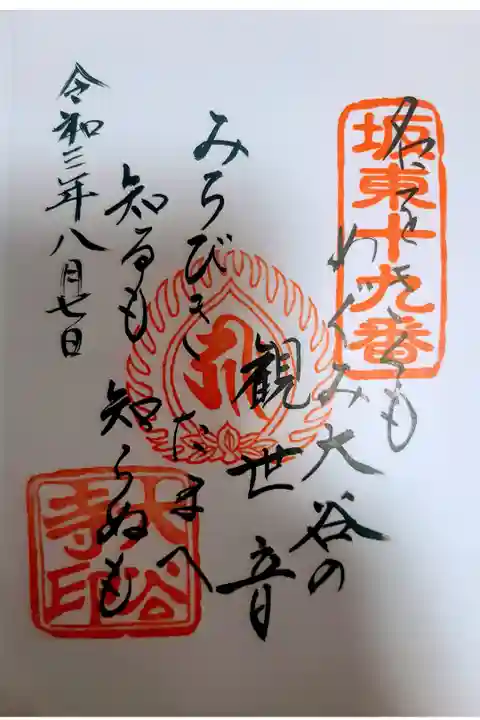 坂東十九番
名をきくも
めぐみ大谷の
観世音
みちびきたまへ
知るも 知らぬも
令和三年八月七日
大谷
寺印